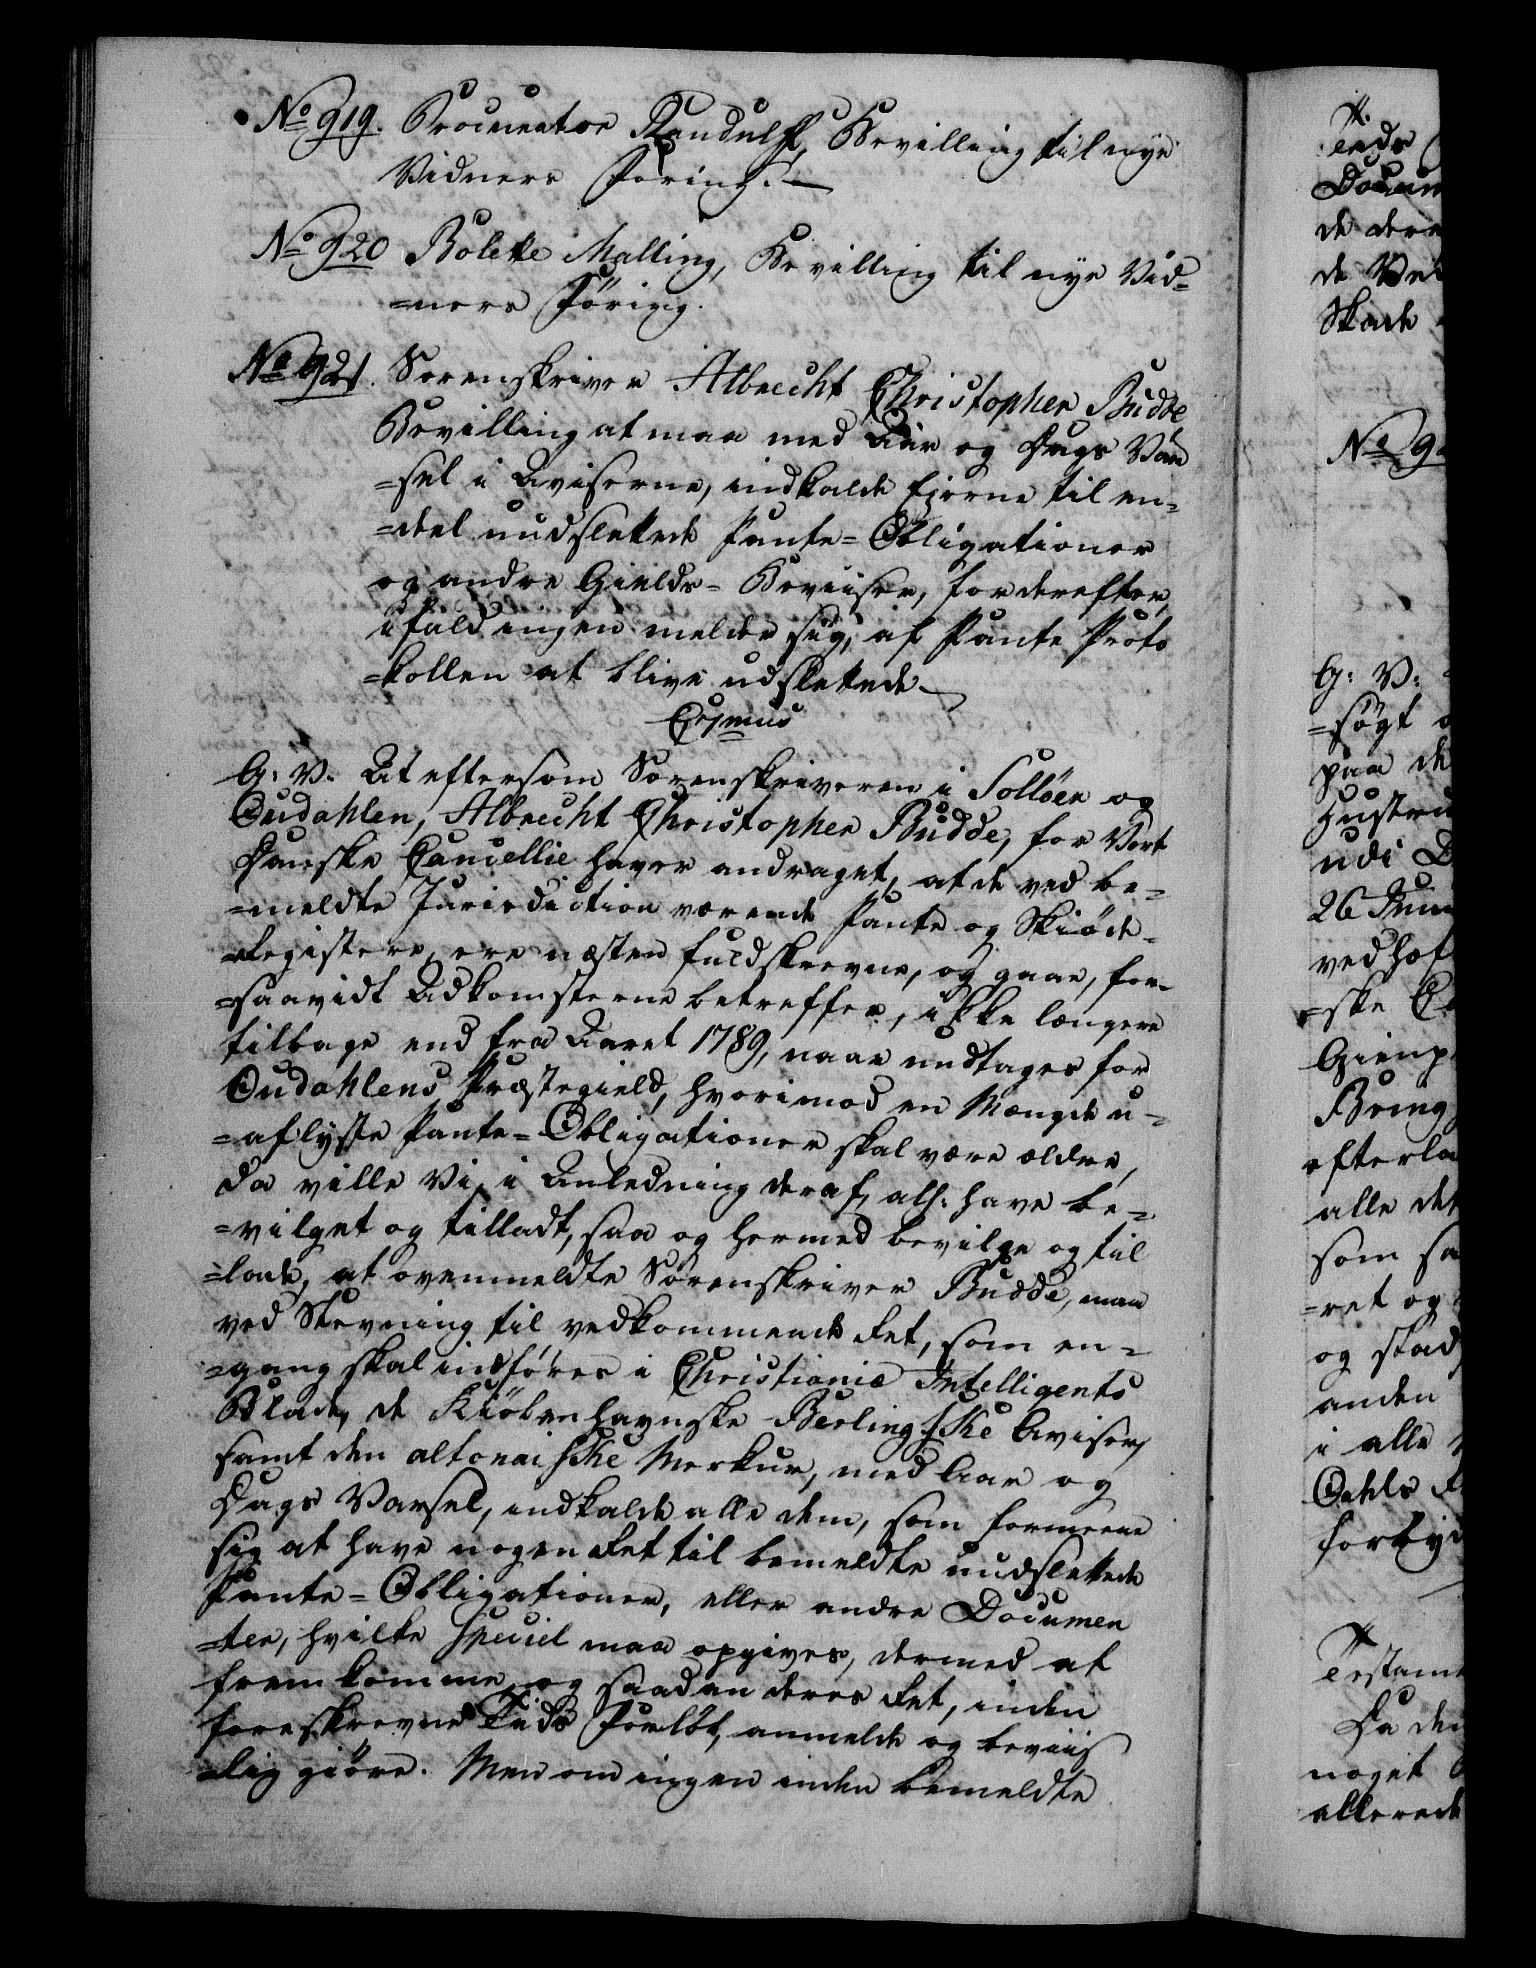 No 919. Procurator Randulff, Bevilling til nye
Vidners Føring. —
No 920 Bolette Malling, Bevilling til nye Vid=
=ners Føring.
No 921. Sorenskriver Albrecht Christopher Budde
Bevilling at maa med Aar og Dags Var
=sel i Aviserne, indkalde Ejerne til en=
=deel uudslettede Pante=Obligationer
og andre Gields=Beviiser, for derefter,
ifald ingen melder sig, af Pante Proto
=kollen at blive udslettede.
G: V. At eftersom Sorenskriveren i Solløer og
Oudahlen, Albrecht Christopher Budde, for Vort
Danske Cancellie haver andraget, at de ved be=
=meldte Jurisdiction værende Pante og Skiøde=
=Registere, ere næsten fuldskrevne, og gaae, for=
=saavidt Adkomsterne betreffer, ikke længere
tilbage end fra Aaret 1789, naar undtages for
Oudahlens Præstegield, hvorimod en Mængde u=
=aflyste Pante=Obligationer skal være ældre,
Da ville Vi, i Anledning deraf, all: have be=
=vilget og tilladt, saa og hermed bevilge og til
=lade, at ovenmeldte Sorenskriver Budde, maa
ved Stevning til vedkommende Ret, som en=
=gang skal indføres i Christiania Intelligents
Blade, de Kiøbenhavnske Berlingske Aviser,
samt den altonaiske Merkur, med Aar og
Dags Varsel, indkalde alle dem, som formeene
sig at have nogen Ret til bemeldte uudslettede
Pante=Obligationer, eller andre Documen
=ter, hvilke speciel maa opgives, dermed at
fremkomme, og saadan deres Ret, inden
foreskrevne Tids Forløb, anmelde og beviis
=lig giøre. Men om ingen inden bemeldte
No 9
G: V:
=søgt
paa de
Hustru
udi
26 Juni
ved hof
=ske
efterla
alle det
som sa
=ret og
og stad
anden
i alle
forbyd
Testame
Da den
noget
allerede